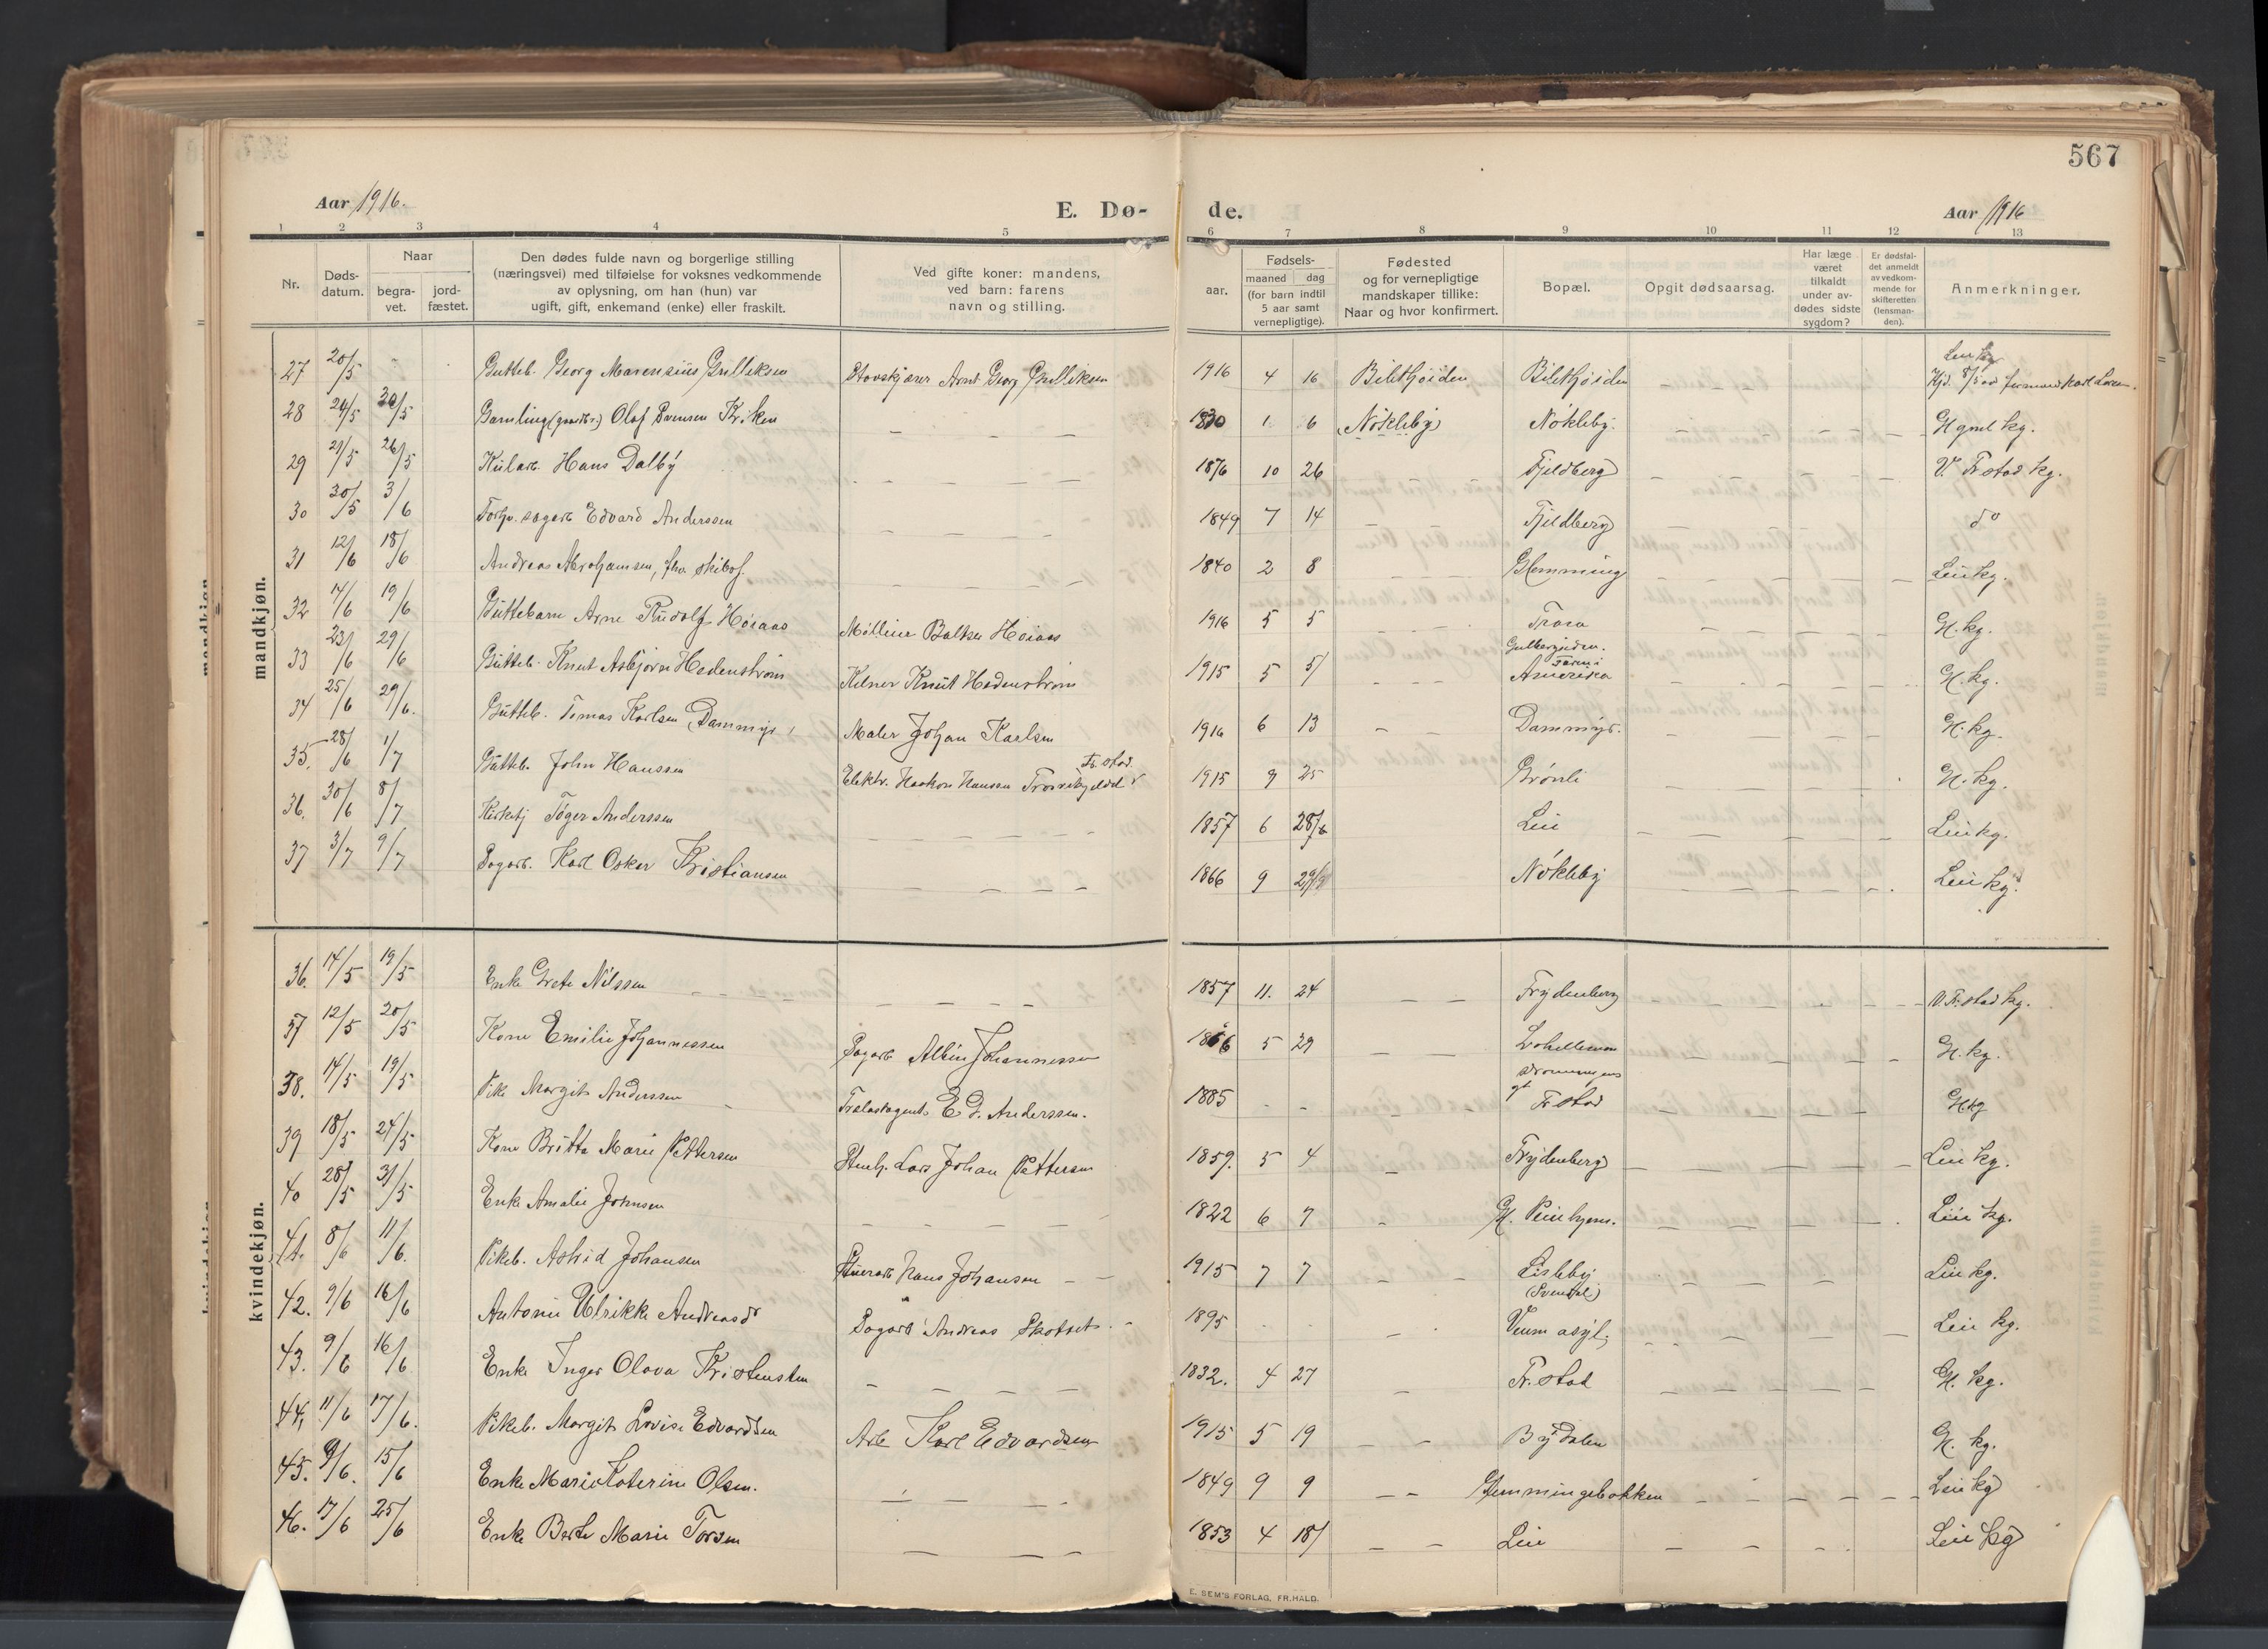 567
Aar 1916.
E. Dø- de.
Aar 1916
1 2 3 4 5 6 7 8 9 10 11 12 13
Nr.
Døds-
datum.
Naar
begra-
vet.
jord-
fæstet.
Den dødes fulde navn og borgerlige stilling
(næringsvei) med tilføielse for voksnes vedkommende
av oplysning, om han (hun) var
ugift, gift, enkemand (enke) eller fraskilt.
Ved gifte koner: mandens,
ved barn: farens
navn og stilling.
Fødsels-
aar.
maaned dag
(for barn indtil
5 aar samt
vernepligtige).
Fødested
og for vernepligtige
mandskaper tillike:
Naar og hvor konfirmert.
Bopæl.
Opgit dødsaarsag.
Har læge
været
tilkaldt
under av-
dødes sidste
sygdom?
Er dødsfal-
det anmeldt
av vedkom-
mende for
skifteretten
(lensman-
den).
Anmerkninger.
mandkjøn.
27 20/5 Gutteb. Georg Marensius Gulliksen Arnt Georg Gulliksen 1916 4 16
28 24/5 30/5 Gamling Olaf Svensen Kriken 1830 1 6 Nøkleby Nøkleby. Gl. kg.
29 21/5 26/5 Kularb. Hans Dalby 1876 10 26 Fjeldberg V. Fr.stad kg.
30 30/5 3/6 Forhv. sagarb Edvard Anderssen 1849 7 14 Fjeldberg do
31 12/6 18/6 Andreas Abrahamsen, fhv. 1840 2 8 Glemminge Leie kg.
32 14/6 19/6 Guttebarn Arne Rudolf Høiaas Møller Balker Høiaas 1916 5 5 Trara G. kg.
33 23/6 29/6 Gutteb. Knut Asbjørn Hedenstrøm Kelner Knut Hedenstrøm 1915 5 5/ Amerika G. kg.
34 25/6 29/6. Gutteb. Tomas Karlsen (Dammyr) Maler Johan Karlsen 1916 6 13 Dammyr. G. kg.
35. 28/6 1/7 Gutteb. John Hanssen Elektr. Haakon Hanssen Fr.stad. 1915 9 25 Grønli G. kg.
36. 30/6 8/7 Kirketj Tøger Anderssen 1857 6 28/6 Leie Leie kg.
37 3/7 9/7 Sagarb. Karl Oskar Kristiansen 1866 9 29/ Nøkleby Leie kg.
kvindekjøn.
36. 14/5 19/5 Enke Grete Nilssen 1857 11. 24 Frydenberg V. Fr.stad kg.
37 12/5 20/5 Kone Emilie Johannessen Sagarb Albin Johannessen 1866 5 29 G. kg.
38. 14/5 19/5 Pike Margit Anderssen Trælastagent E. D. Anderssen. 1885 - - Fr.stad G. kg
39 18/5 24/5 Kone Britta Marie Pettersen Stenh. Lars Johan Pettersen 1859. 5 4 Frydenberg Leie kg.
40 28/5 31/5 Enke Amalie Johnsen 1822 6 7 Gl. Pleiehjem. Leie kg.
41. 8/6 11/6. Pikeb. Astrid Johansen Hans Johansen 1915 7 7 Lisleby Leie kg.
42. 9/6 16/6 Antonie Ulrikke Andreasdr Sagarb Andreas 1895 Veum asyl. Leie kg.
43. 9/6 16/6 Enke Inger Olava Kristensen 1832. 4 27 Fr.stad G. kg.
44. 11/6 17/6. Pikeb. Margit Lovise Edvardsen Arb Karl Edvardsen 1915 5 19 Bydalen G. kg.
45. 9/6. 15/6 Enke Marie Katerine Olsen. 1849 9 9 Glemmingebakken Leie kg
46. 17/6 25/6 Enke Berte Marie Torsen 1853 4 18/ Leie Leie kg
E. SEM'S FORLAG, FR.HALD.